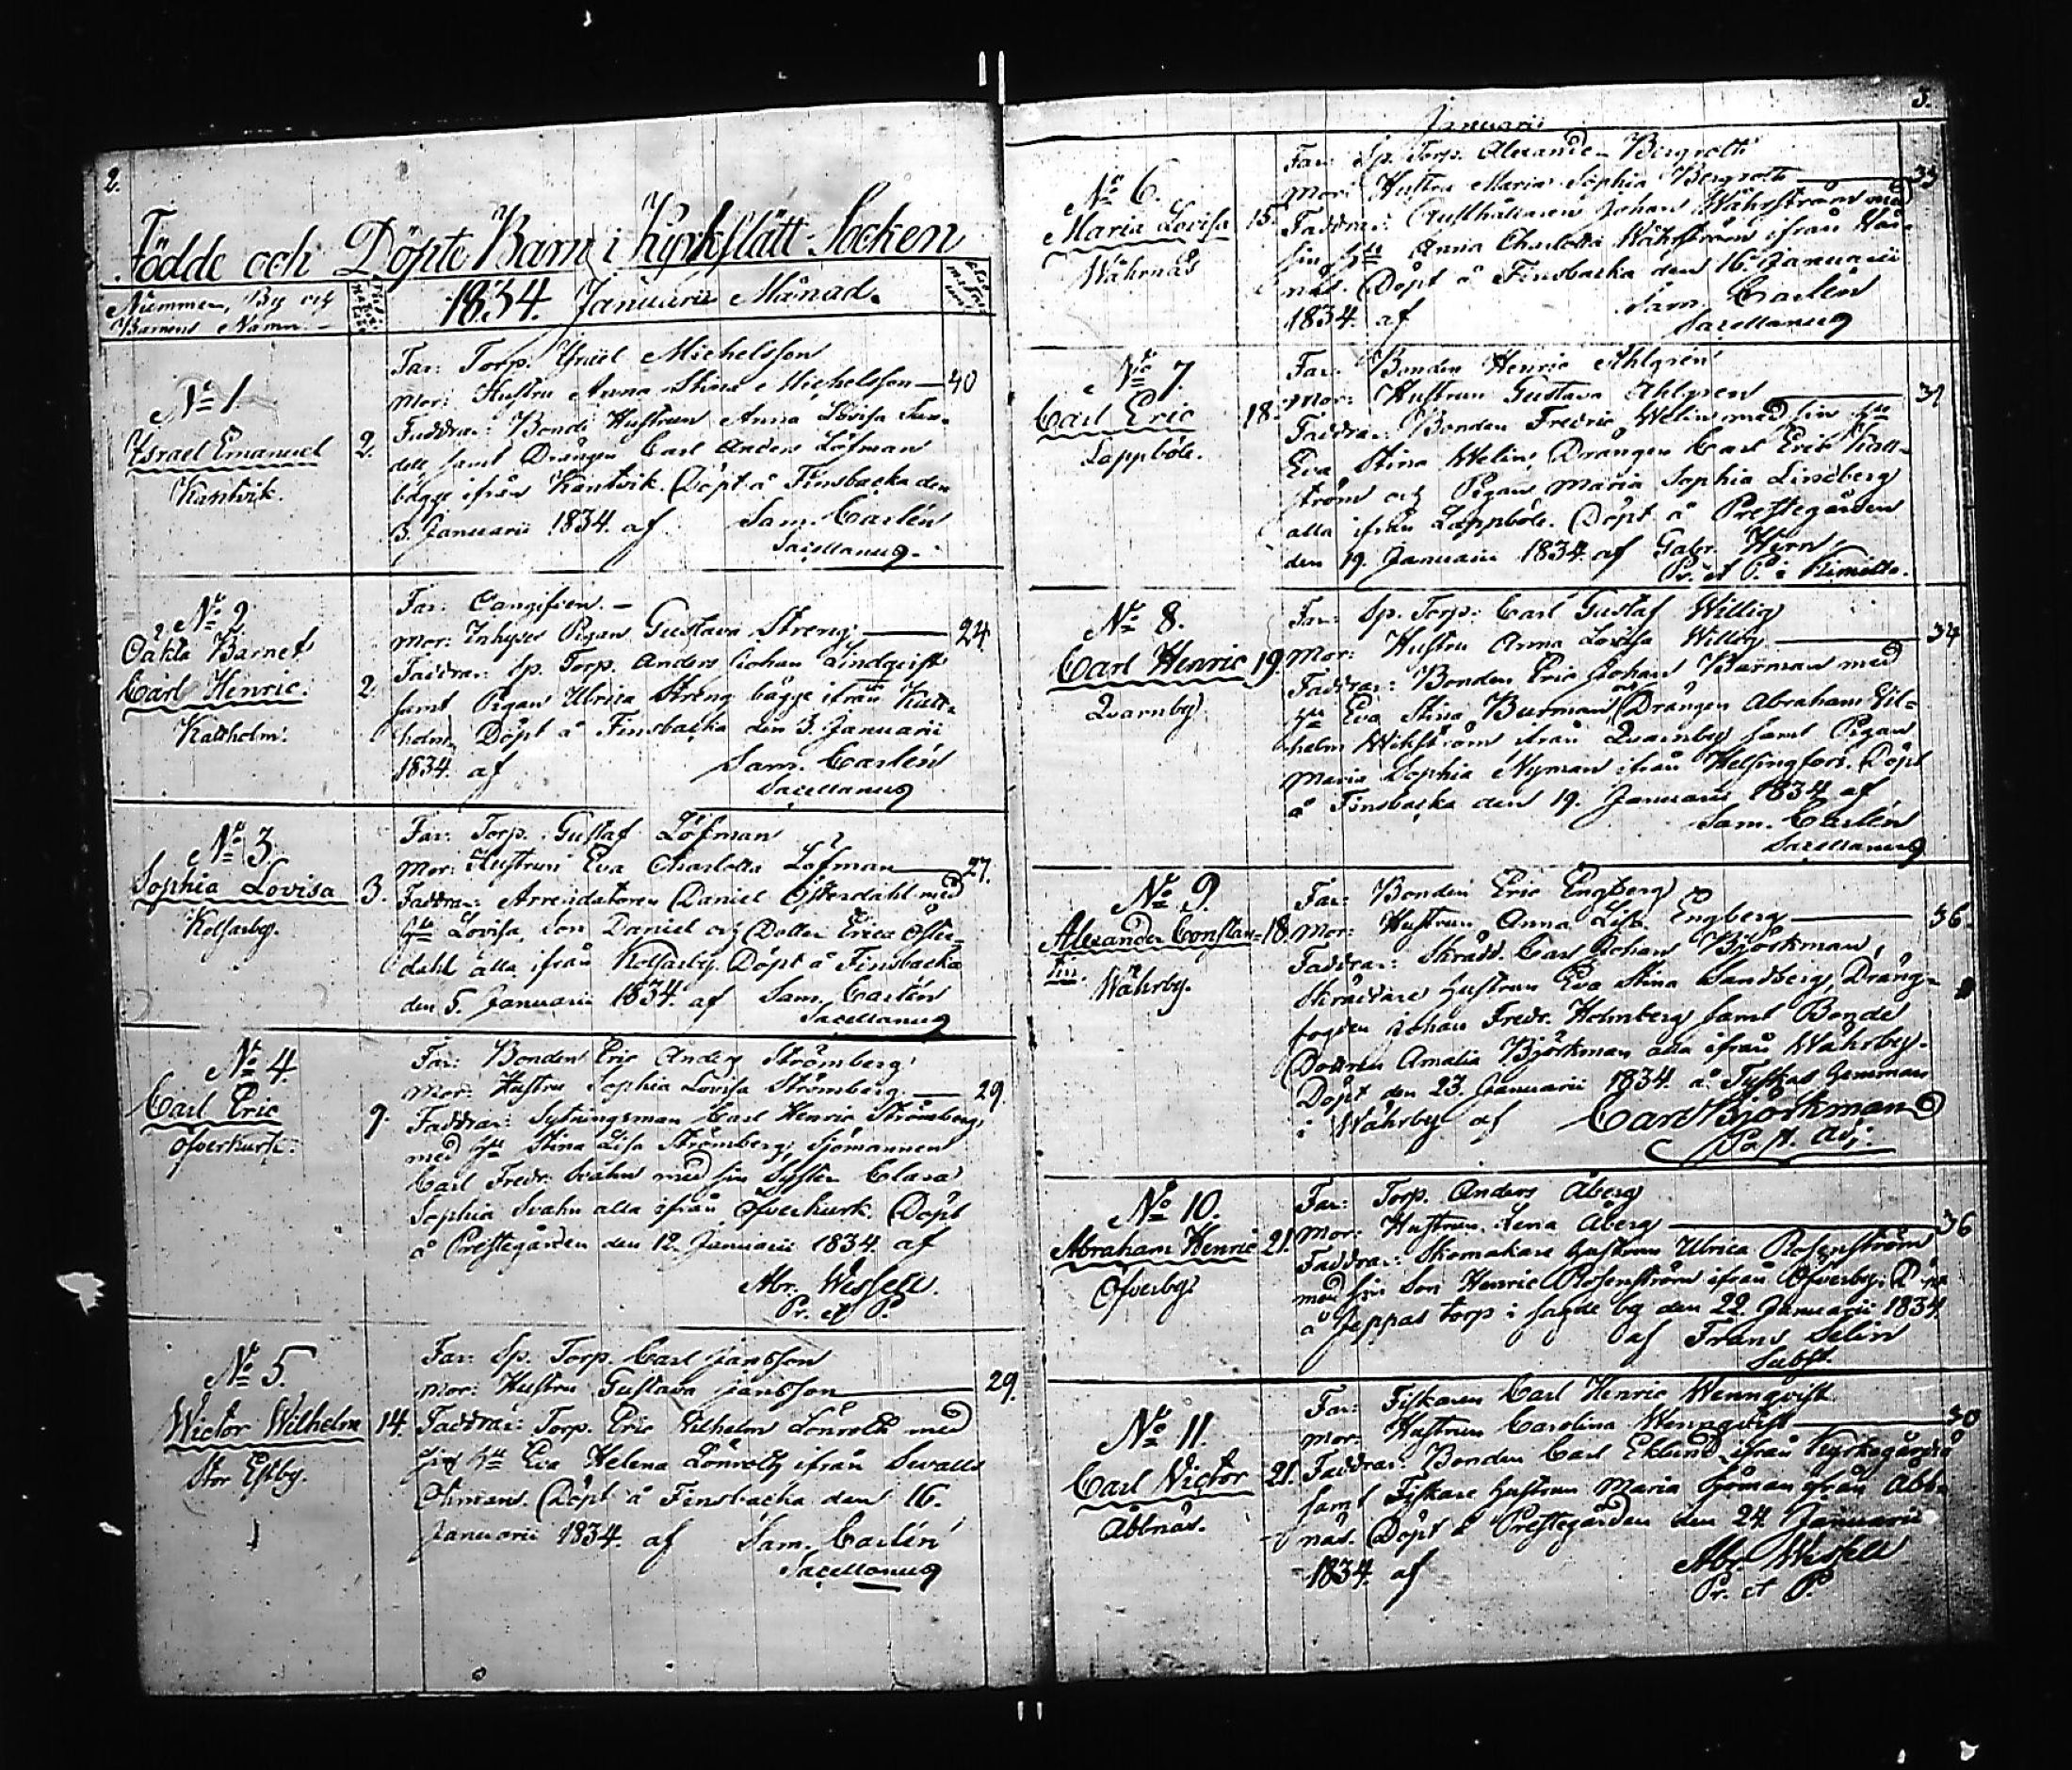 2.
Födde och Döpte Barn i Kyrkslätt Socken
Nummer, By och
Barnens Namn.
1834. Januarii Månad.
No 1.
Israel Emanuel
Kantvik.
2.
Far: Torp. Israel Michelsson
Mor: Hustru Anna Stina Michelsson — 40
Faddrar: Bonde Hustrun Anna Lovisa Sun-
dell samt Drängen Carl Anders Löfman
bägge ifrån Kantvik. Döpt å Finsbacka den
3. Januarii 1834. af Sam. Carlén
Sacellanus.
No 2.
Oäkta Barnet
Carl Henric.
Kalkholm.
2.
Far: Oangifven. —
Mor: Inhyses Pigan Gustava Streng — 24.
Faddrar: Sp. Torp. Anders Johan Lindqvist
samt Pigan Ulrica Streng bägge ifrån Kalk-
holm. Döpt å Finsbacka den 3. Januarii
1834. af Sam. Carlén
Sacellanus
No 3.
Sophia Lovisa
Kolsarby.
3.
Far: Torp. Gustaf Löfman
Mor: Hustrun Eva Charlotta Löfman — 27.
Faddrar: Arrendatoren Daniel Österdahl med
Hu Lovisa, Son Daniel och Dotter Erica Öster-
dahl alla ifrån Kolsarby. Döpt å Finsbacka
den 5. Januarii 1834. af Sam. Carlén
Sacellanus
No 4.
Carl Eric
Öfverkurk.
9.
Far: Bonden Eric Anders Strömberg
Mor: Hustru Sophia Lovisa Strömberg — 29.
Faddrar: Sytningsman Carl Henric Strömberg
med Hu Stina Lisa Strömberg, Sjömannen
Carl Fredr. Svahn med sin Syster Clara
Sophia Svahn alla ifrån Öfverkurk. Döpt
å Prestegården den 12. Januarii 1834. af
Abr. Wessell.
Pr. et P.
No 5.
Wictor Wilhelm
Stor Estby.
14.
Far: Sp. Torp. Carl Jansson
Mor: Hustru Gustava Jansson — 29.
Faddrar: Torp. Eric Wilhelm Lönroth med
sin Hu Eva Helena Lönroth ifrån Svalls
Döpt å Finsbacka den 16.
Januarii 1834. af Sam. Carlén
Sacellanus
3.
Januarii
No 6.
Maria Lovisa
Wåhrnäs
15.
Far: Sp. Torp. Alexander Bergroth
Mor: Hustru Maria Sophia Bergroth — 33
Faddrar: Rusthållaren Johan Wåhrström med
sin Hu Anna Charlotta Wåhrström ifrån Wår-
näs. Döpt å Finsbacka den 16. Januarii
1834. af Sam. Carlén
Sacellanus
No 7.
Carl Eric
Lappböle.
18.
Far: Bonden Henric Ahlgrén
Mor: Hustrun Gustava Ahlgren — 31
Faddrar: Bonden Fredric Welin med sin Hu
Eva Stina Welin, Drängen Carl Eric
ström och Pigan Maria Sophia Lindberg
alla ifrån Lappböle. Döpt å Prestegården
den 19. Januarii 1834. af Gabr. Hern
Pr. et P. i Kimitto.
No 8.
Carl Henric
Qvarnby.
19.
Far: Sp. Torp: Carl Gustaf Willig
Mor: Hustru Anna Lovisa Willig — 34
Faddrar: Bonden Eric Johan Burman med
Hu Eva Stina Burman och Drängen Abraham Vil-
helm Wikström ifrån Qvarnby samt Pigan
Maria Sophia Nyman ifrån Helsingfors. Döpt
å Finsbacka den 19. Januarii 1834. af
Sam. Carlén
Sacellanus
No 9.
Alexander Constan-
tin.
Wåhrby.
18.
Far: Bonden Eric Engberg
Mor: Hustrun Anna Lisa Engberg — 36.
Faddrar: Skrädd. Carl Johan Björkman,
Skräddare Hustrun Eva Stina Sandberg, Dräng-
fogden Johan Fredr. Holmberg samt Bonde
Dottren Amalia Björkman alla ifrån Wåhrby.
Döpt den 23. Januarii 1834. å Tyskas Hemman
i Wåhrby af Carl Björkman
Past. Adj.
No 10.
Abraham Henric
Öfverby.
21.
Far: Torp. Anders Åberg
Mor: Hustrun Lena Åberg — 36
Faddrar: Skomakare Hustrun Ulrica Rosenström
med sin Son Henric Rosenström ifrån Öfverby. Döpt
å Jeppas torp i sagde by den 22. Januarii 1834.
af Frans Selin
Subst.
No 11.
Carl Victor
Åbbnäs.
21.
Far: Fiskaren Carl Henric Wennqvist
Mor: Hustrun Carolina Wennqvist — 30
Faddrar: Bonden Carl Eklund ifrån Kyrkogård
samt Fiskare Hustrun Maria Sjöman ifrån Åbb-
näs. Döpt å Prestegården den 24. Januarii
1834. af Abr. Wessell
Pr. et P.